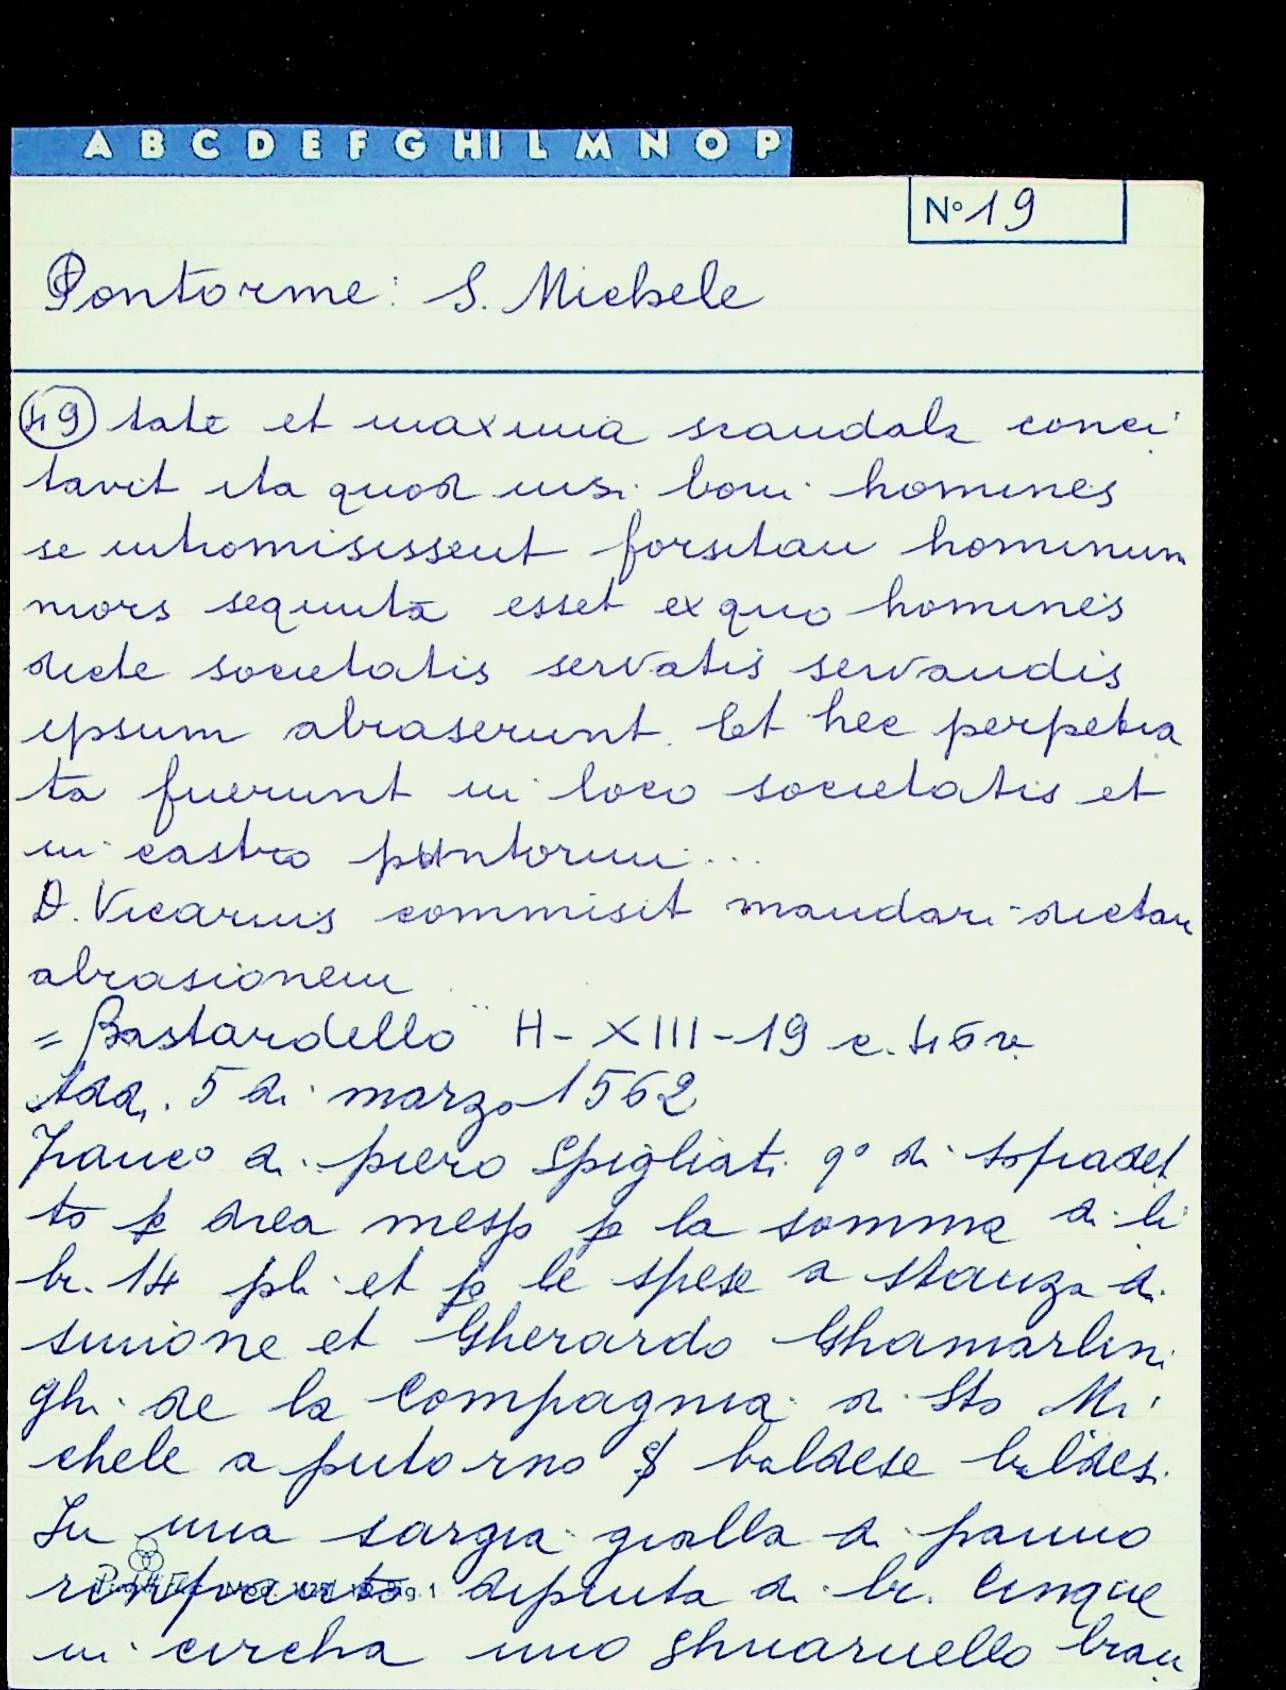 A B C D E F G HI L M N O P
N° 19
Pontorme: S. Michele
49 tate et maxima scandala conci
tavit ita quod nisi boni homines
se intromisissent forsitan hominum
mors sequuta esset ex quo homines
dicte societatis servatis servandis
ipsum abraserunt. Et hec perpetra
ta fuerunt in loco societatis et
in castro puntormi...
D. Vicarius commisit mandari dictam
abrasionem
= Bastardello H-XIII-19 c. 46 v.
Add. 5 di marzo 1562
Franco di piero Spigliati q° di sopradet
to p drea messo p la somma di li
br. 14 pli et p le spese a stanza di
simone et Gherardo Ghamarlin
ghi de la Compagnia di Sto Mi
chele a putorno baldese baldesi
In una sargia gialla di panno
dipinta di br. Cinque
in circha uno Ghuarnello bian